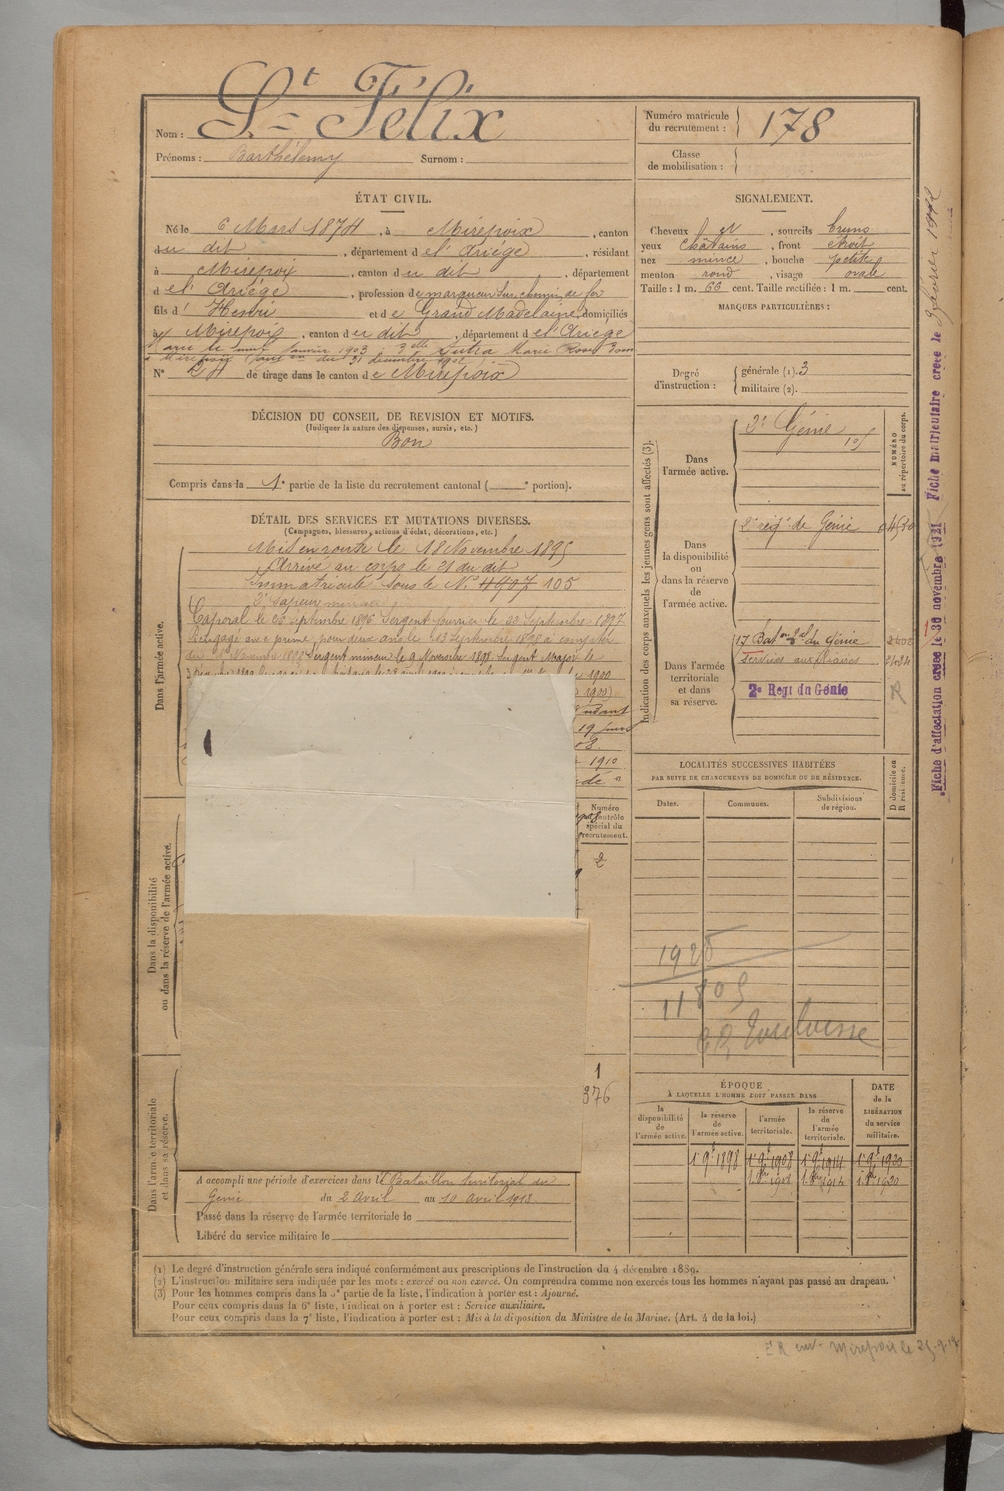 Nom : St Félix
Prénoms : Barthélemy Surnom :
Numéro matricule du recrutement : 178
Classe de mobilisation :
ÉTAT CIVIL.
Né le 6 Mars 1874, à Mirepoix, canton
du dit, département de l'Ariège, résidant
à Mirepoix, canton du dit, département
de l'Ariège, profession de marqueur sur chemin de fer
fils d' Henri et de Grand Madelaine, domiciliés
à Mirepoix, canton du dit, département de l'Ariège
Marié le Janvier 1903 Marie
à Mirepoix du 31 décembre 1902
N° 24 de tirage dans le canton de Mirepoix
SIGNALEMENT.
Cheveux et, sourcils bruns
yeux châtains, front étroit
nez mince, bouche petite
menton rond, visage ovale
Taille : 1 m. 66 cent. Taille rectifiée : 1 m. cent.
MARQUES PARTICULIÈRES :
Degré d'instruction : générale (1). 3
militaire (2).
DÉCISION DU CONSEIL DE REVISION ET MOTIFS.
(Indiquer la nature des dispenses, sursis, etc.)
Bon
Compris dans la 1e partie de la liste du recrutement cantonal ( e portion).
DÉTAIL DES SERVICES ET MUTATIONS DIVERSES.
(Campagnes, blessures, actions d'éclat, décorations, etc.)
Dans l'armée active.
Mis en route le 18 Novembre 1895
Arrivé au corps le 21 du dit
Immatriculé sous le N° 4907 105
2e sapeur mineur
Caporal le 26 septembre 1896 Sergent fourrier le 23 Septembre 1897
Rengagé avec prime pour deux ans le 13 Septembre 1898 à compter
du Novembre 1898 Sergent mineur le 9 Novembre 1898 Sergent Major le
1900
1900)
19 juin
1910
Dans la disponibilité ou dans la réserve de l'armée active.
Numéro contrôle spécial du recrutement.
2
Dans l'armée territoriale et dans sa réserve.
1
376
A accompli une période d'exercices dans le Bataillon territorial du
Génie du 2 Avril au 10 avril 1913
Passé dans la réserve de l'armée territoriale le
Libéré du service militaire le
Indication des corps auxquels les jeunes gens sont affectés (3).
NUMÉRO au répertoire du corps.
Dans l'armée active.
2e Génie
105
Dans la disponibilité ou dans la réserve de l'armée active.
2e régt de Génie
Dans l'armée territoriale et dans sa réserve.
17 Baton du Génie
Services auxiliaires
2e Regt du Génie
LOCALITÉS SUCCESSIVES HABITÉES
PAR SUITE DE CHANGEMENTS DE DOMICILE OU DE RÉSIDENCE.
D domicile ou R résidence.
Dates. Communes. Subdivisions de région.
1928
11805
Toulouse
ÉPOQUE
À LAQUELLE L'HOMME DOIT PASSER DANS
la disponibilité de l'armée active.
la réserve de l'armée active.
l'armée territoriale.
la réserve de l'armée territoriale.
DATE de la LIBÉRATION du service militaire.
1 9e 1898 1 9e 1908 1 9e 1914 1 9e 1920
Fiche d'affectation créée le 30 novembre 1921 Fiche matriculaire créée le 9 février 1942
(1) Le degré d'instruction générale sera indiqué conformément aux prescriptions de l'instruction du 4 décembre 1889.
(2) L'instruction militaire sera indiquée par les mots : exercé ou non exercé. On comprendra comme non exercés tous les hommes n'ayant pas passé au drapeau.
(3) Pour les hommes compris dans la 5e partie de la liste, l'indication à porter est : Ajourné.
Pour ceux compris dans la 6e liste, l'indication à porter est : Service auxiliaire.
Pour ceux compris dans la 7e liste, l'indication à porter est : Mis à la disposition du Ministre de la Marine. (Art. 4 de la loi.)
Mirepoix le